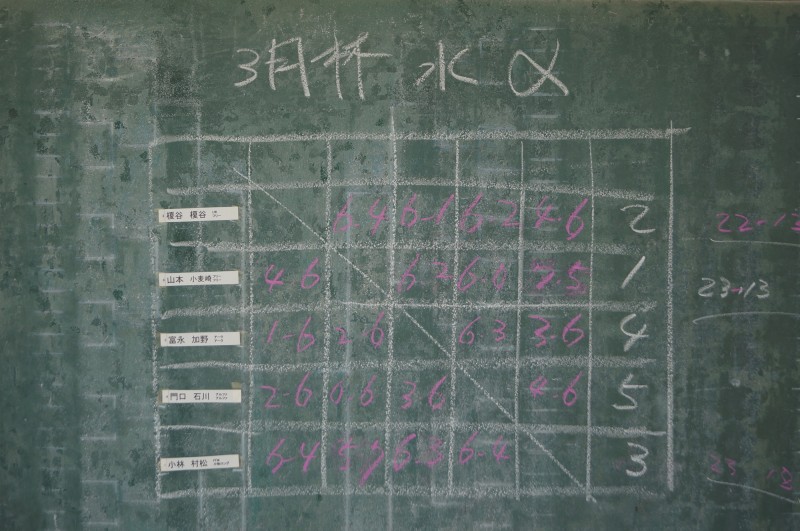 3月杯 水 α
榎谷 榎谷 6-4 6-1 6-2 4-6 2 22-13
山本 小美崎 4-6 6-2 6-0 7-5 1 23-13
富永 加野 1-6 2-6 6 3 3-6 4
門口 石川 2-6 0-6 3-6 4-6 5
小林 村松 6-4 5-7 6-3 6-4 3